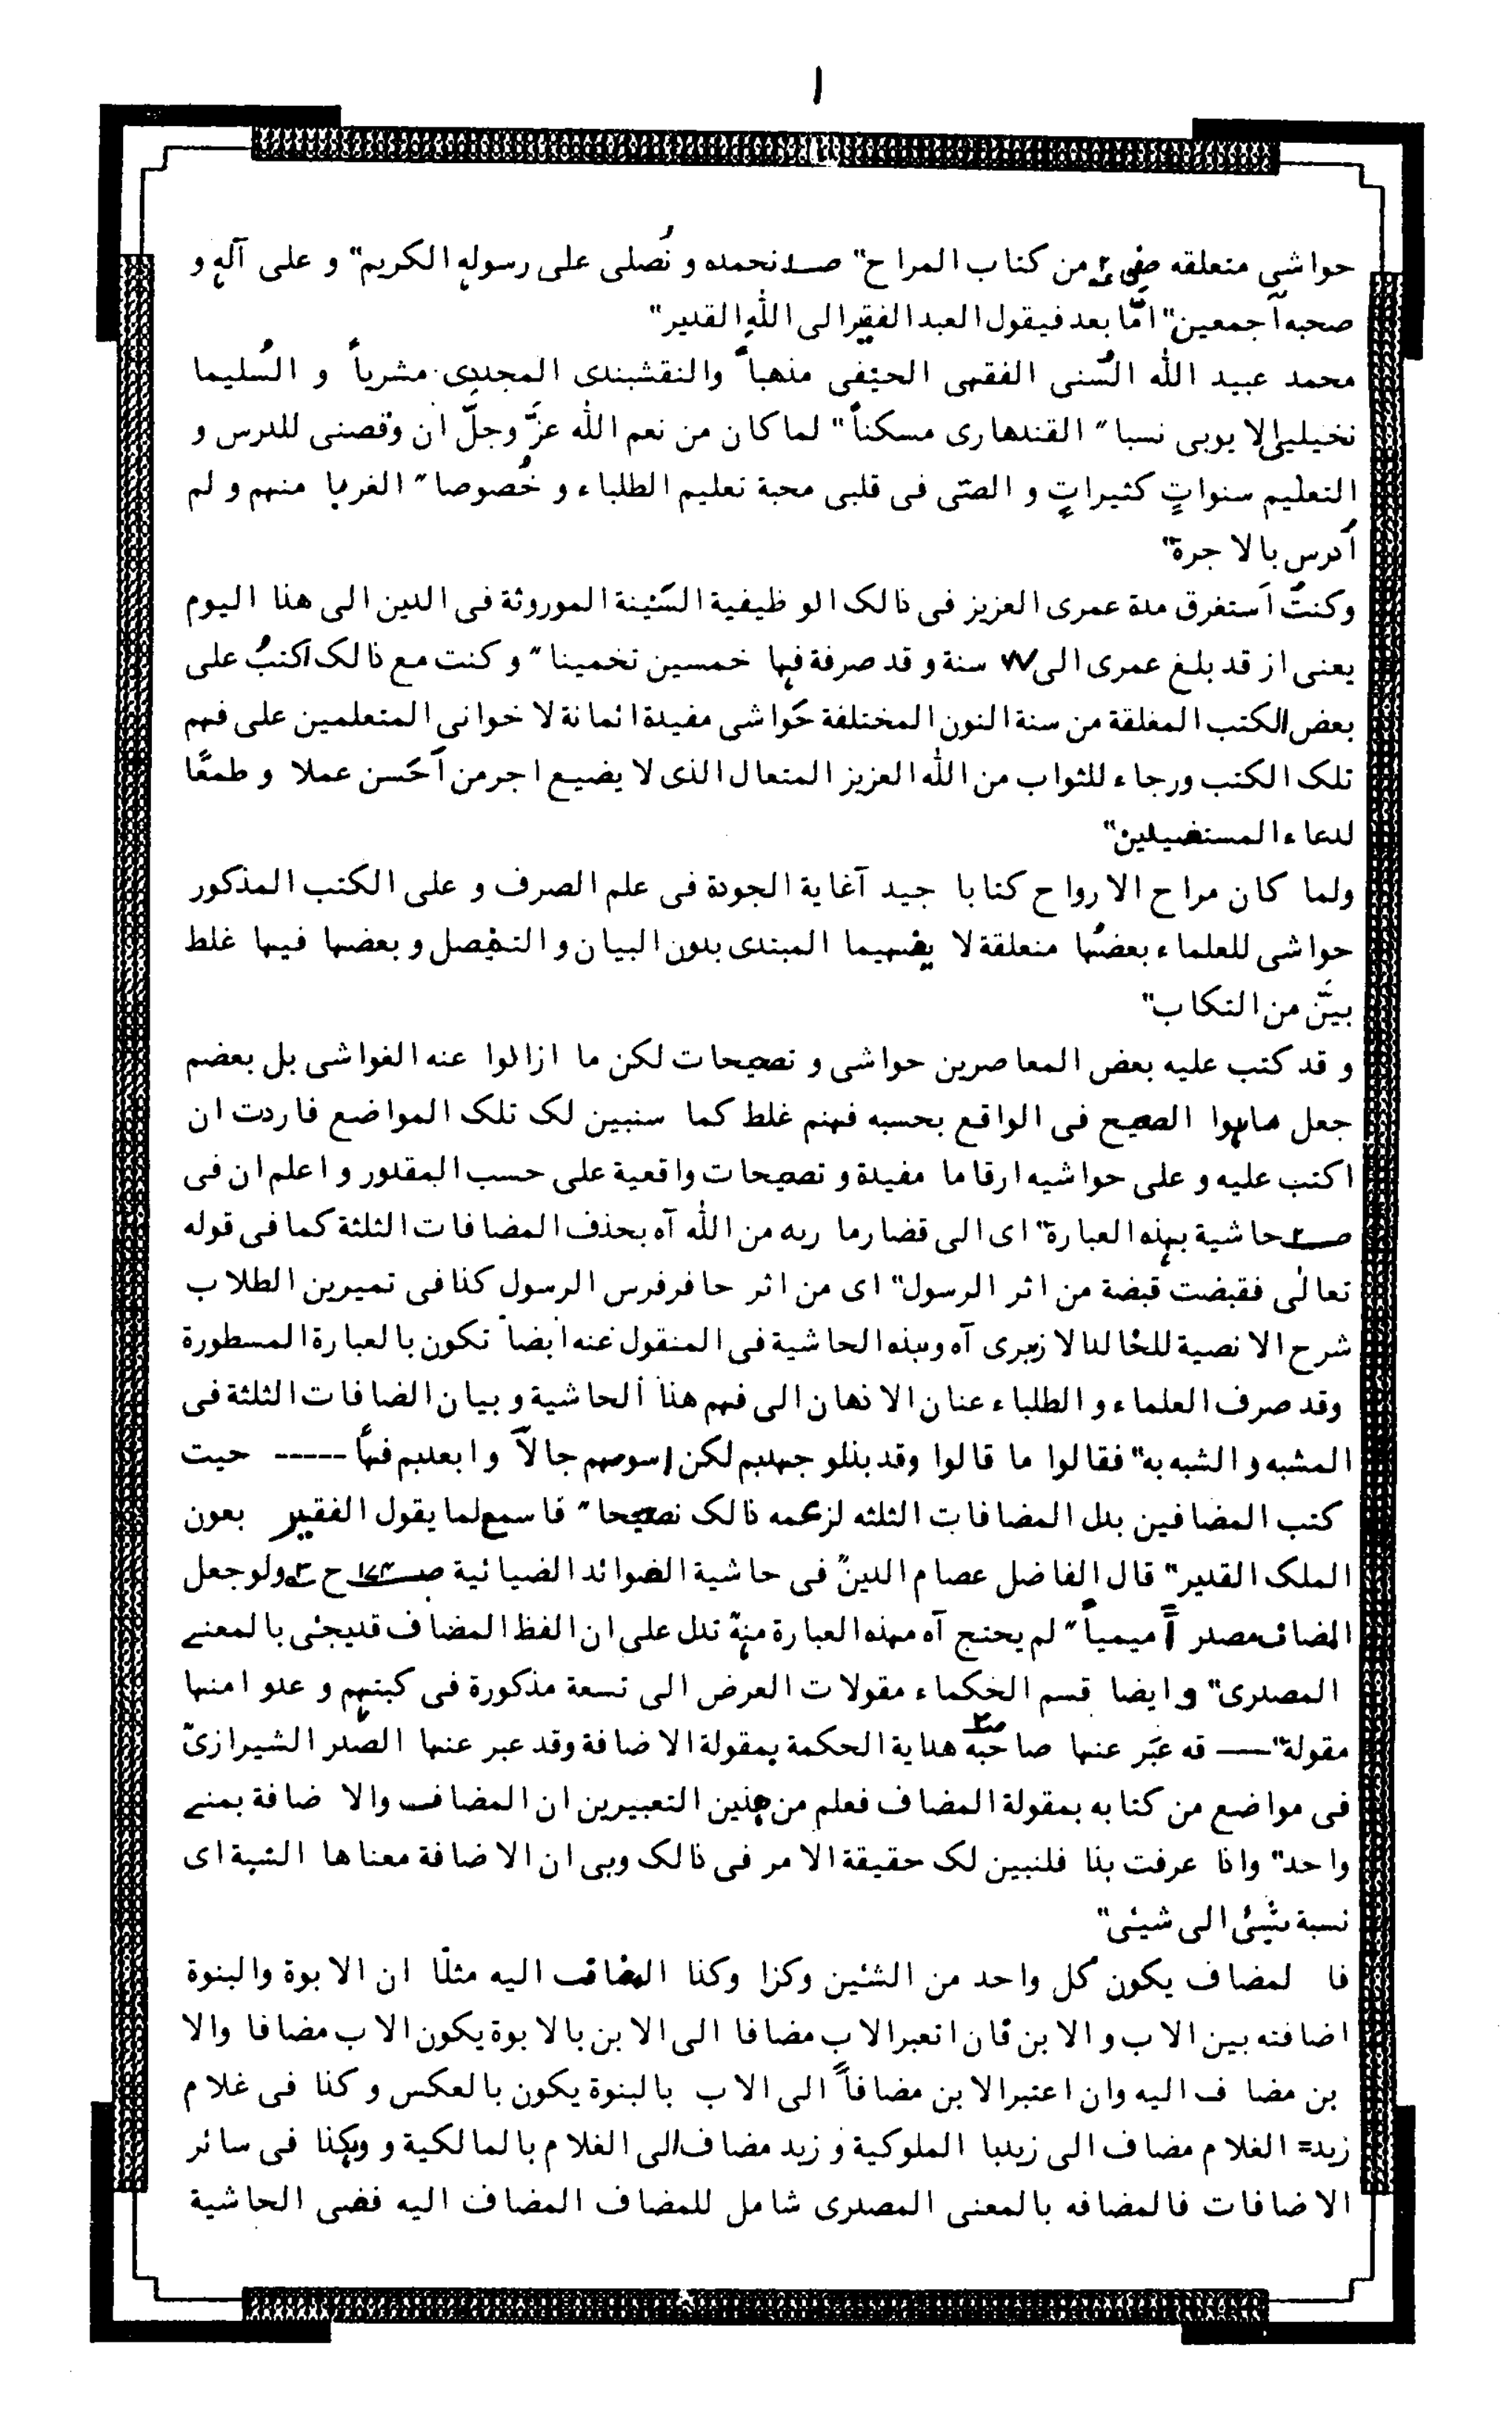 ١
حواشی متعلقه صفی ٢ من کتاب المراح" صــ نحمده و نُصلی علی رسوله الکریم" و علی آله و
صحبه أجمعین" امّا بعد فیقول العبد الفقیر الی الله القدیر"
محمد عبید الله السُنی الفقهی الحنفی مذهباً والنقشبندی المجددی مشرباً و السُلیما
نخیلی الا یوبی نسبا" القندهاری مسکناً" لما کان من نعم الله عزَّ وجلَّ ان وقصنی للدرس و
التعلیم سنواتٍ کثیراتٍ و الصتی فی قلبی محبة تعلیم الطلباء و خُصوصا" الغربا منهم و لم
أدرس بالا جرة"
وکنتُ أستغرق مدة عمری العزیز فی ذالک الو ظیفیة السَّنِینة الموروثة فی الدین الی هذا الیوم
یعنی از قد بلغ عمری الی ٧٧ سنة و قد صرفة فیها خمسین تخمینا" و کنت مع ذالک اکتبُ علی
بعض الکتب المغلقة من سنة النون المختلفة حَواشی مفیدة ائمانة لا خوانی المتعلمین علی فهم
تلک الکتب ورجاء للثواب من الله العزیز المتعال الذی لا یضیع اجر من أحَسن عملا و طمعًا
لدعاء المستفیدین"
ولما کان مراح الارواح کتابا جید آغایة الجودة فی علم الصرف و علی الکتب المذکور
حواشی للعلماء بعضُها منعلقة لا یفهیما المبتدی بدون البیان و التفصل و بعضها فیها غلط
بیَّن من التکاب"
و قد کتب علیه بعض المعاصرین حواشی و تصحیحات لکن ما ازالوا عنه الغواشی بل بعضم
جعل ماہوا الصحیح فی الواقع بحسبه فهنم غلط کما سنبین لک تلک المواضع فاردت ان
اکتب علیه و علی حواشیه ارقاما مفیدة و تصحیحات واقعیة علی حسب المقدور و اعلم ان فی
صــ٢ حاشیة بهذه العبارة" ای الی قضارما ربه من الله آه بحذف المضافات الثلثة کما فی قوله
تعالٰی فقبضت قبضة من اثر الرسول" ای من اثر حافر فرس الرسول کذا فی تمیرین الطلاب
شرح الا نصیة للخالدالا زہری آه وہذه الحاشیة فی المنقول عنه ایضاً تکون بالعبارة المسطورة
وقد صرف العلماء و الطلباء عنان الاذهان الی فهم هذا ألحاشیة و بیان الضافات الثلثة فی
المشبه و الشبه به" فقالوا ما قالوا وقد بذلو جہدہم لکن اسوہم جالآ و ابعدہم فہاً ----- حیت
کتب المضافین بدل المضافات الثلثه لزعمه ذالک تصحیحا" فا سمع لما یقول الفقیر بعون
الملک القدیر" قال الفاضل عصام الدینؒ فی حاشیة الفوائد الضیائیة صــ١٧٣ ح ٣ ولو جعل
المضاف مصدر أ میمیاً" لم یحتج آه مہذه العبارة منہّ تدل علی ان الفظ المضاف قدیجئی بالمعنے
المصدری" و ایضا قسم الحکماء مقولات العرض الی تسعة مذکورة فی کبتهم و عدو امنها
مقولة" --- قه عبَر عنها صاحبه هدایة الحکمة بمقولة الاضافة وقد عبر عنها الصَدر الشیرازیّ
فی مواضع من کتابه بمقولة المضاف فعلم من هذین التعبیرین ان المضاف والا ضافة بمنے
واحد" واذا عرفت بذا فلنبین لک حقیقة الامر فی ذالک وہی ان الاضافة معناها الشبة ای
نسبة شیئی الی شیئی"
فا لمضاف یکون کل واحد من الشئین وکزا وکذا المضاف الیه مثلًا ان الابوة والبنوة
اضافته بین الاب و الابن فان اتعبر الاب مضافا الی الابن بالابوة یکون الاب مضافا والا
بن مضا ف الیه وان اعتبر الابن مضافاً الی الاب بالبنوة یکون بالعکس و کذا فی غلام
زید= الغلام مضاف الی زیدبا الملوکیة و زید مضاف الی الغلام بالمالکیة و وہکذا فی سائر
الاضافات فالمضافه بالمعنی المصدری شامل للمضاف المضاف الیه ففی الحاشیة